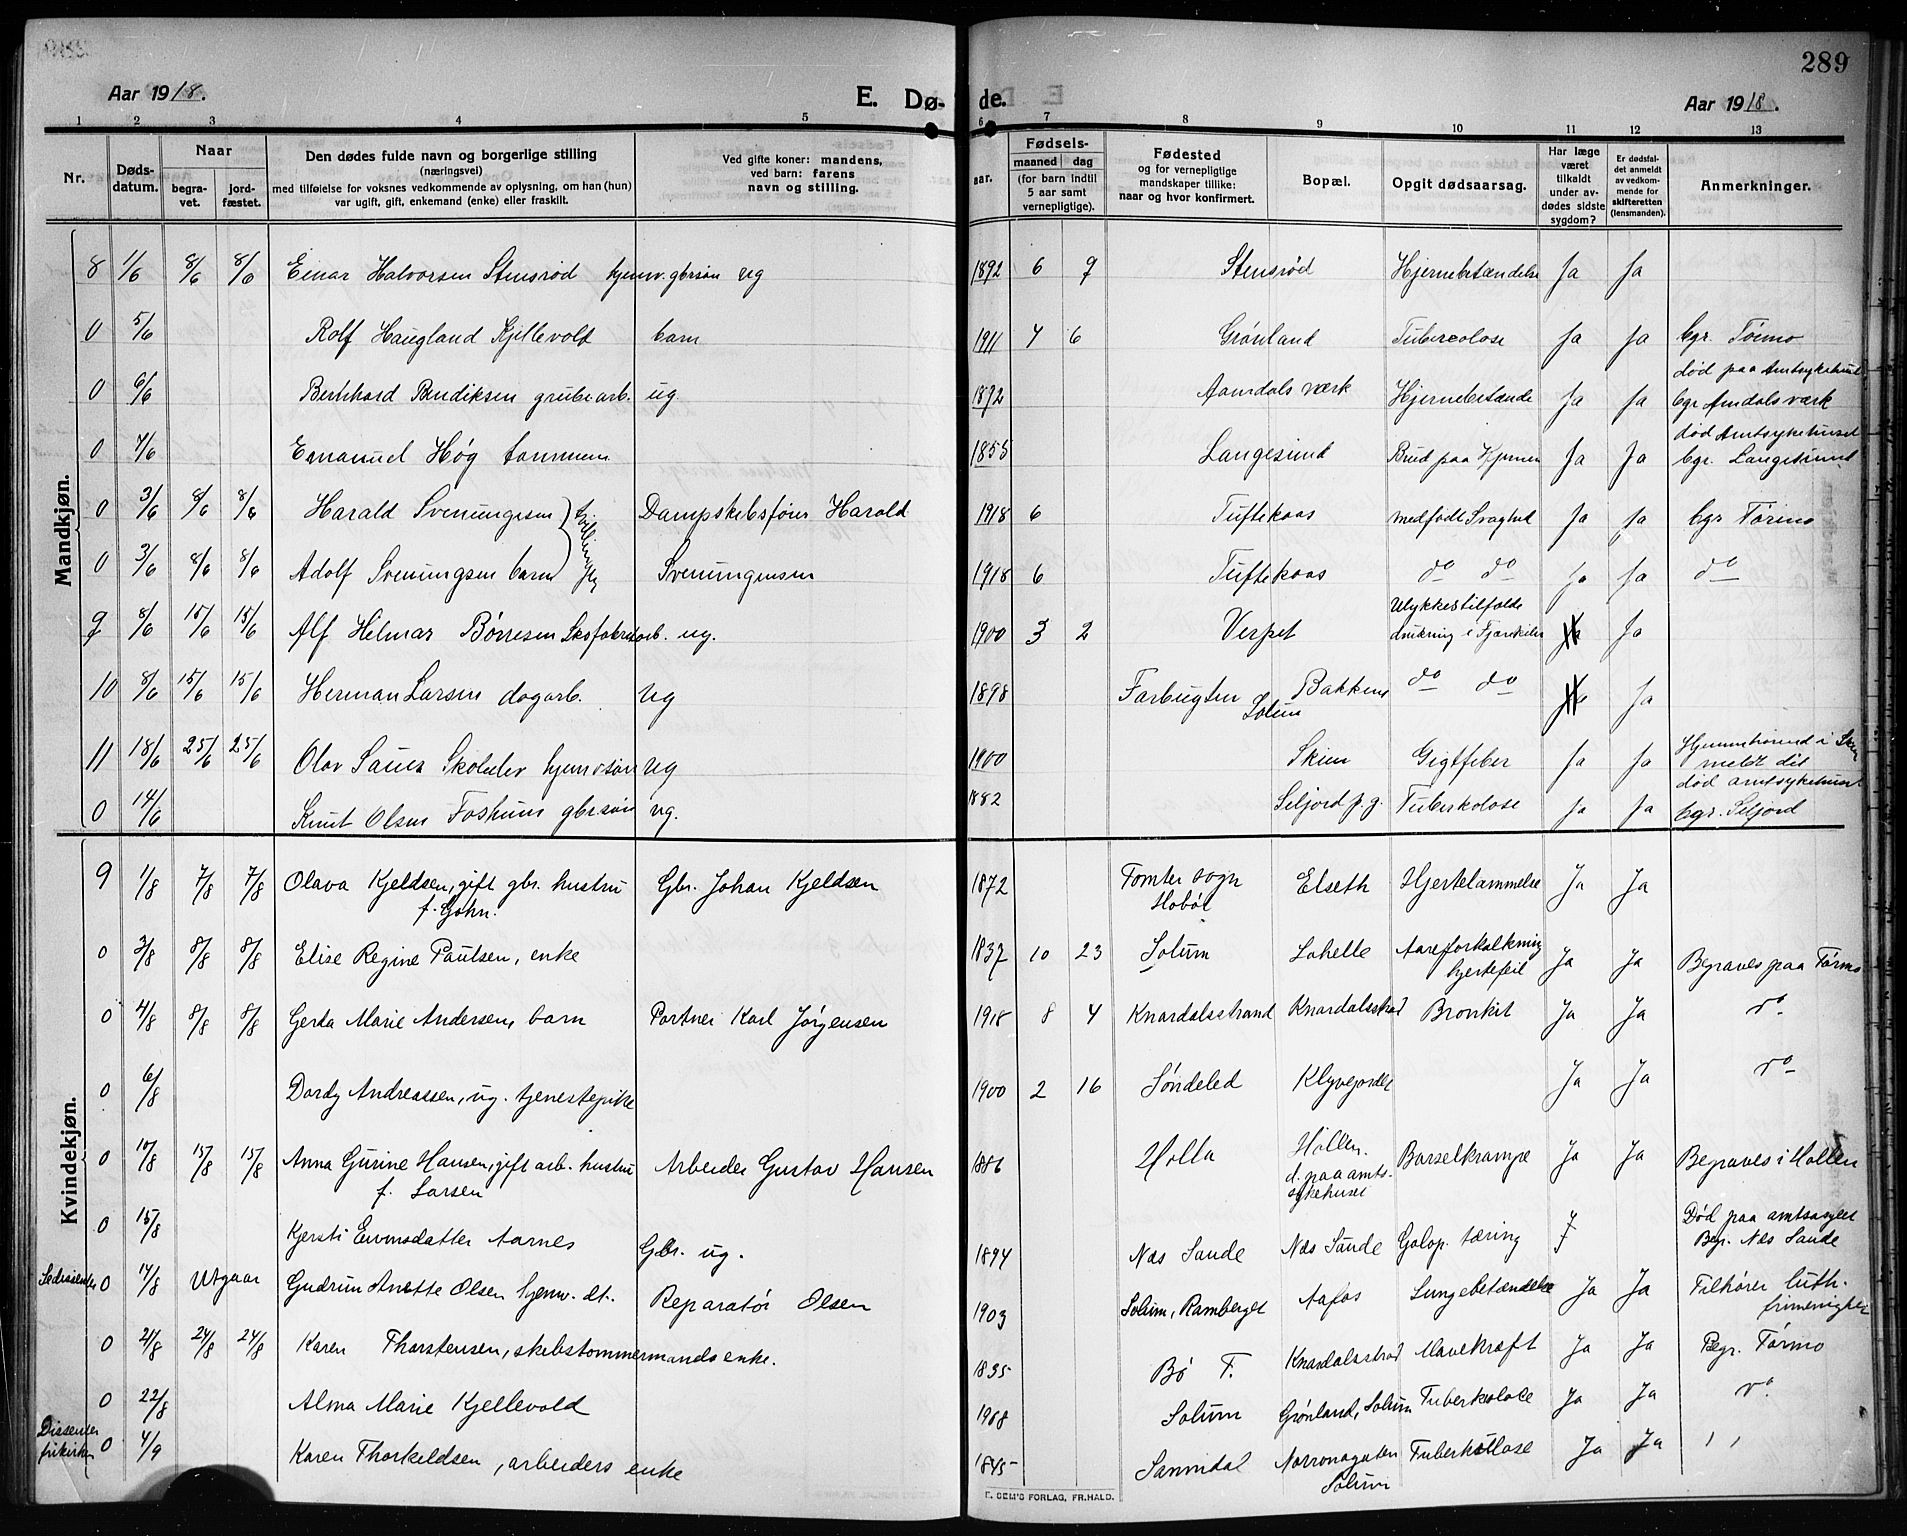 289
Aar 1918.
E. Dø- de.
Aar 1918.
1 2 3 4 5 6 7 8 9 10 11 12 13
Nr.
Dødsdatum.
Naar
begravet.
jordfæstet.
Den dødes fulde navn og borgerlige stilling
(næringsvei)
med tilføielse for voksnes vedkommende av oplysning, om han (hun)
var ugift, gift, enkemand (enke) eller fraskilt.
Ved gifte koner: mandens,
ved barn: farens
navn og stilling.
aar.
Fødsels-
maaned dag
(for barn indtil
5 aar samt
vernepligtige).
Fødested
og for vernepligtige
mandskaper tillike:
naar og hvor konfirmert.
Bopæl.
Opgit dødsaarsag.
Har læge
været
tilkaldt
under av-
dødes sidste
sygdom?
Er dødsfal-
det anmeldt
av vedkom-
mende for
skifteretten
(lensmanden).
Anmerkninger.
Mandkjøn.
8 1/6 8/6 8/6 Einar Halvorsen Stensrød hjemv. gbrsøn ug 1892 6 9 Stensrød Hjernebetændelse Ja Ja
0 5/6 Rolf Haugland Kjellevold barn 1911 7 6 Grønland Tuberculose Ja Ja bgr. Tørmo
død paa Amtsykehuset
0 6/6 Bernhard Bendiksen grubearb. ug 1872 Aamdals værk Hjernebetænde Ja Ja bgr Amdals værk
død Amtsykehuset
0 7/6 Emanuel Høg 1855 Langesund Brud paa Hjernen Ja Ja bgr. Langesund
0 3/6 8/6 8/6 Harald Svenungsen Dampskibsfører Harald 1918 6 Tuftekaas medfødt Svaghed Ja Ja bgr Tørmo
0 3/6 8/6 8/6 Adolf Svenungsen barn Svenungsen 1918 6 Tuftekaas do do Ja Ja do
Ulykkestilfælde
9 8/6 15/6 15/6 Alf Helmar Børresen Skofabrikarb. ug. 1900 3 2 Verpet drukning i Fjærekilen Ja
10 8/6 15/6 15/6 Herman Larsen dagarb. ug 1898 Farbugten Solum Bakken do do Ja
11 18/6 25/6 25/6 Olav Sauer Skoleelev hjemv søn ug 1900 Skien Gigtfeber Ja Ja Hjemmehørend i Skien
meldt dit
død amtsykehuset
0 14/6 Knut Olsen Foshuus gbrsøn ug. 1882 Seljord p.g. Tuberkolose Ja Ja bgr. Seljord
Kvindekjøn.
9 1/8 7/8 7/8 Olava Kjeldsen, gift gbr. hustru Gbr. Johan Kjeldsen 1872 Tomter sogn Elseth Hjertelammelse Ja Ja
f. Gohn. Hobøl
0 3/8 8/8 8/8 Elise Regine Paulsen, enke 1837 10 23 Solum Lahelle Aareforkalkning Ja Ja Begraves paa Tørmo
hjertefeil
0 4/8 8/8 8/8 Gerda Marie Andersen, barn Portner Karl Jørgensen 1918 8 4 Knardalsstrand Knardalsstrad Bronkit Ja Ja do
0 6/8 Dordy Andreassen, ug. tjenestepike 1900 2 16 Søndeled Klyvejordet Ja Ja do
0 10/8 15/8 15/8 Anna Gurine Hansen, gift arb. hustru Arbeider Gustav Hansen 1886 Holla Hollen. Barselkrampe Ja Ja Begraves i Hollen
f. Larsen d. paa amts-
sykehuset
0 15/8 Kjersti Evensdatter Aarnes Gbr. ug. 1894 Næs Saude Næs Saude Galop. tæring J Død paa amtssyget
Begr. Næs Saude
0 17/8 Utgaar Gudrun Anette Olsen hjemv. dt. Reparatør Olsen 1903 Solum, Ramberget Aafos Lungebetændelse Ja Ja Tilhører luth.
frimenighet
0 21/8 24/8 24/8 Karen Thorstensen, skibstømmermands enke. 1835 Bø T. Knardalsstrad Mavekræft Ja Ja Begr. Tørmo
0 22/8 Alma Marie Kjellevold 1908 Solum Grønland, Solum Tuberkolose Ja Ja do
Dissenter
frikirken 0 4/9 Karen Thorkeldsen, arbeiders enke 1845 Sannidal Norronagaten Tuberkolose Ja Ja , ,
Solum
E. SEM'S FORLAG, FR.HALD.